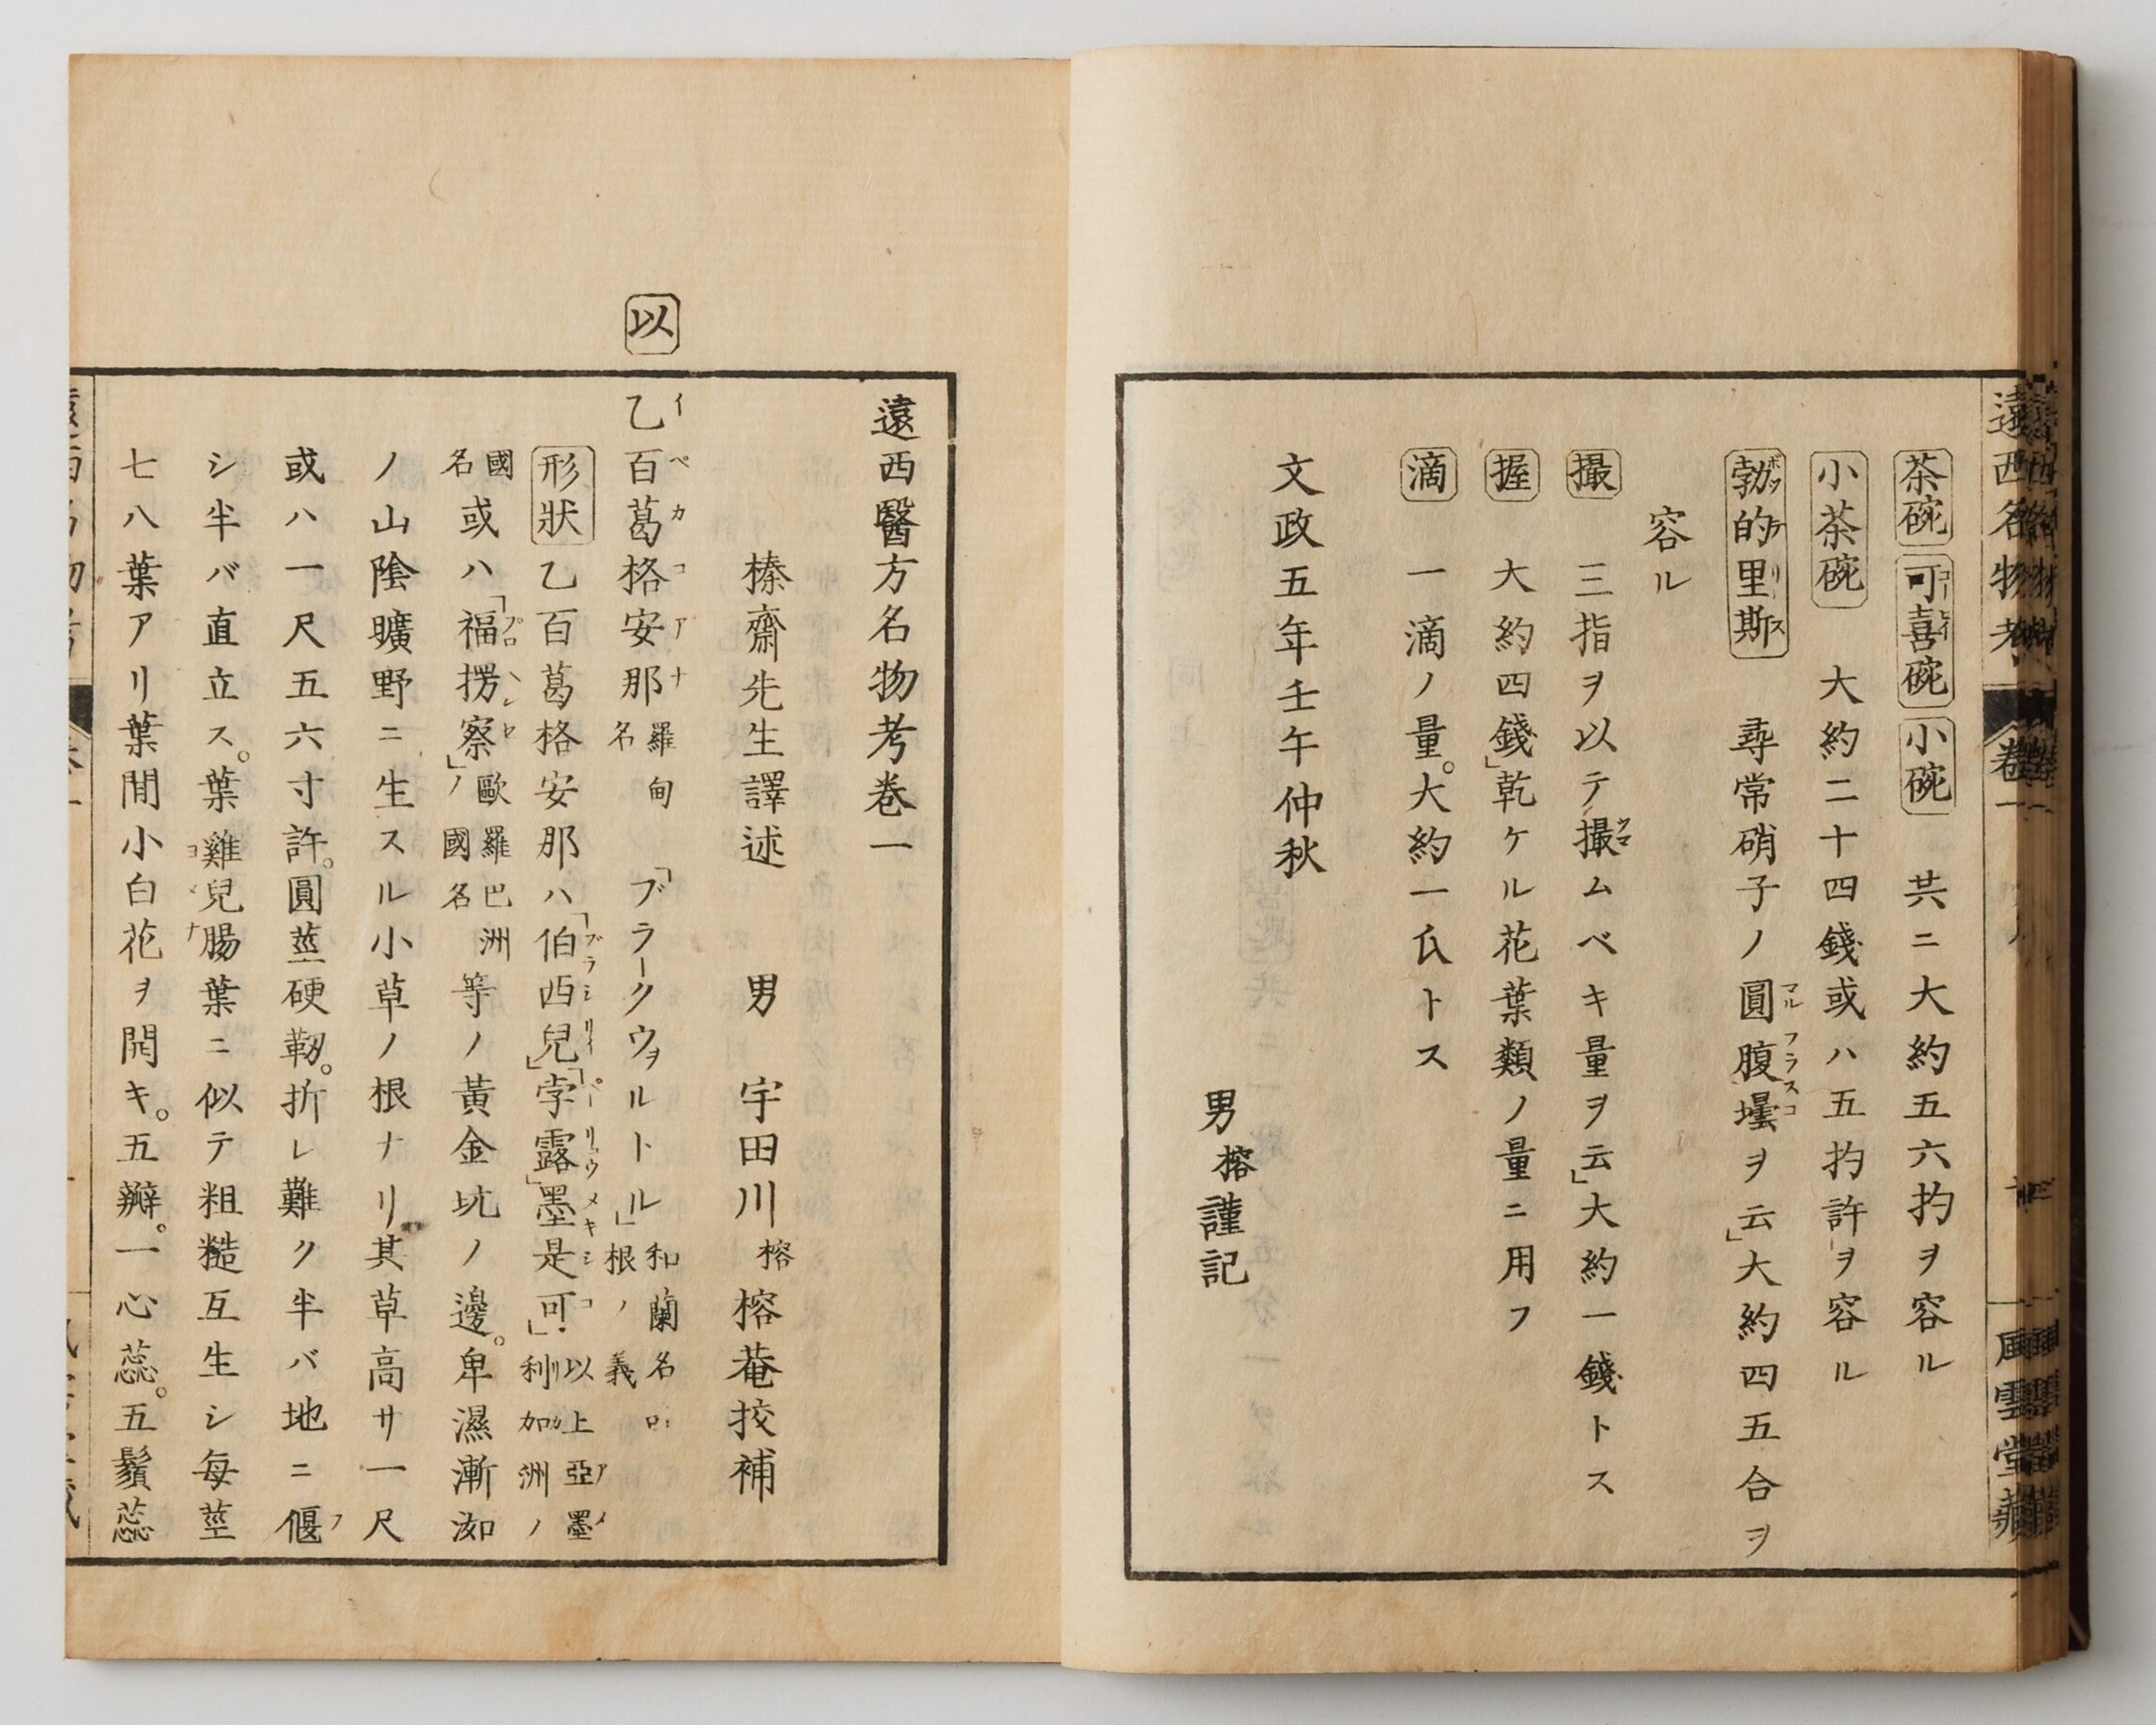 遠西名物考
卷一
風雲堂藏
茶碗 可喜碗 小碗 共ニ大約五六扚ヲ容ル
コーヒイ
小茶碗 大約二十四錢或ハ五扚許ヲ容ル
勃的里斯 尋常硝子ノ圓腹壜ヲ云」大約四五合ヲ
ボッテリース
マル フラスコ
容ル
撮 三指ヲ以テ撮ムベキ量ヲ云」大約一錢トス
ツマ
握 大約四錢」乾ケル花葉類ノ量ニ用フ
滴 一滴ノ量。大約一氏トス
文政五年壬午仲秋
男 榕 謹記
遠西醫方名物考卷一
榛齋先生譯述 男 宇田川 榕 榕菴挍補
以
乙百葛格安那 羅甸名 「ブラークウヲルトル」 和蘭名 根ノ義
イペカコアナ
形狀 乙百葛格安那ハ「伯西兒」「孛露」墨是可」 以上亞墨利加洲ノ
ブラシリイ ペーリュウ メキシコ アメリカ
國名 或ハ「福撈察」ノ 歐羅巴洲國名 等ノ黃金坑ノ邊。卑濕漸洳
プロヘンセ
ノ山陰曠野ニ生スル小草ノ根ナリ其草高サ一尺
或ハ一尺五六寸許。圓莖硬韌。折レ難ク半バ地ニ偃
フ
シ半バ直立ス。葉雞兒腸葉ニ似テ粗糙互生シ每莖
ヨメナ
七八葉アリ葉間小白花ヲ開キ。五瓣。一心蕊。五鬚蕊